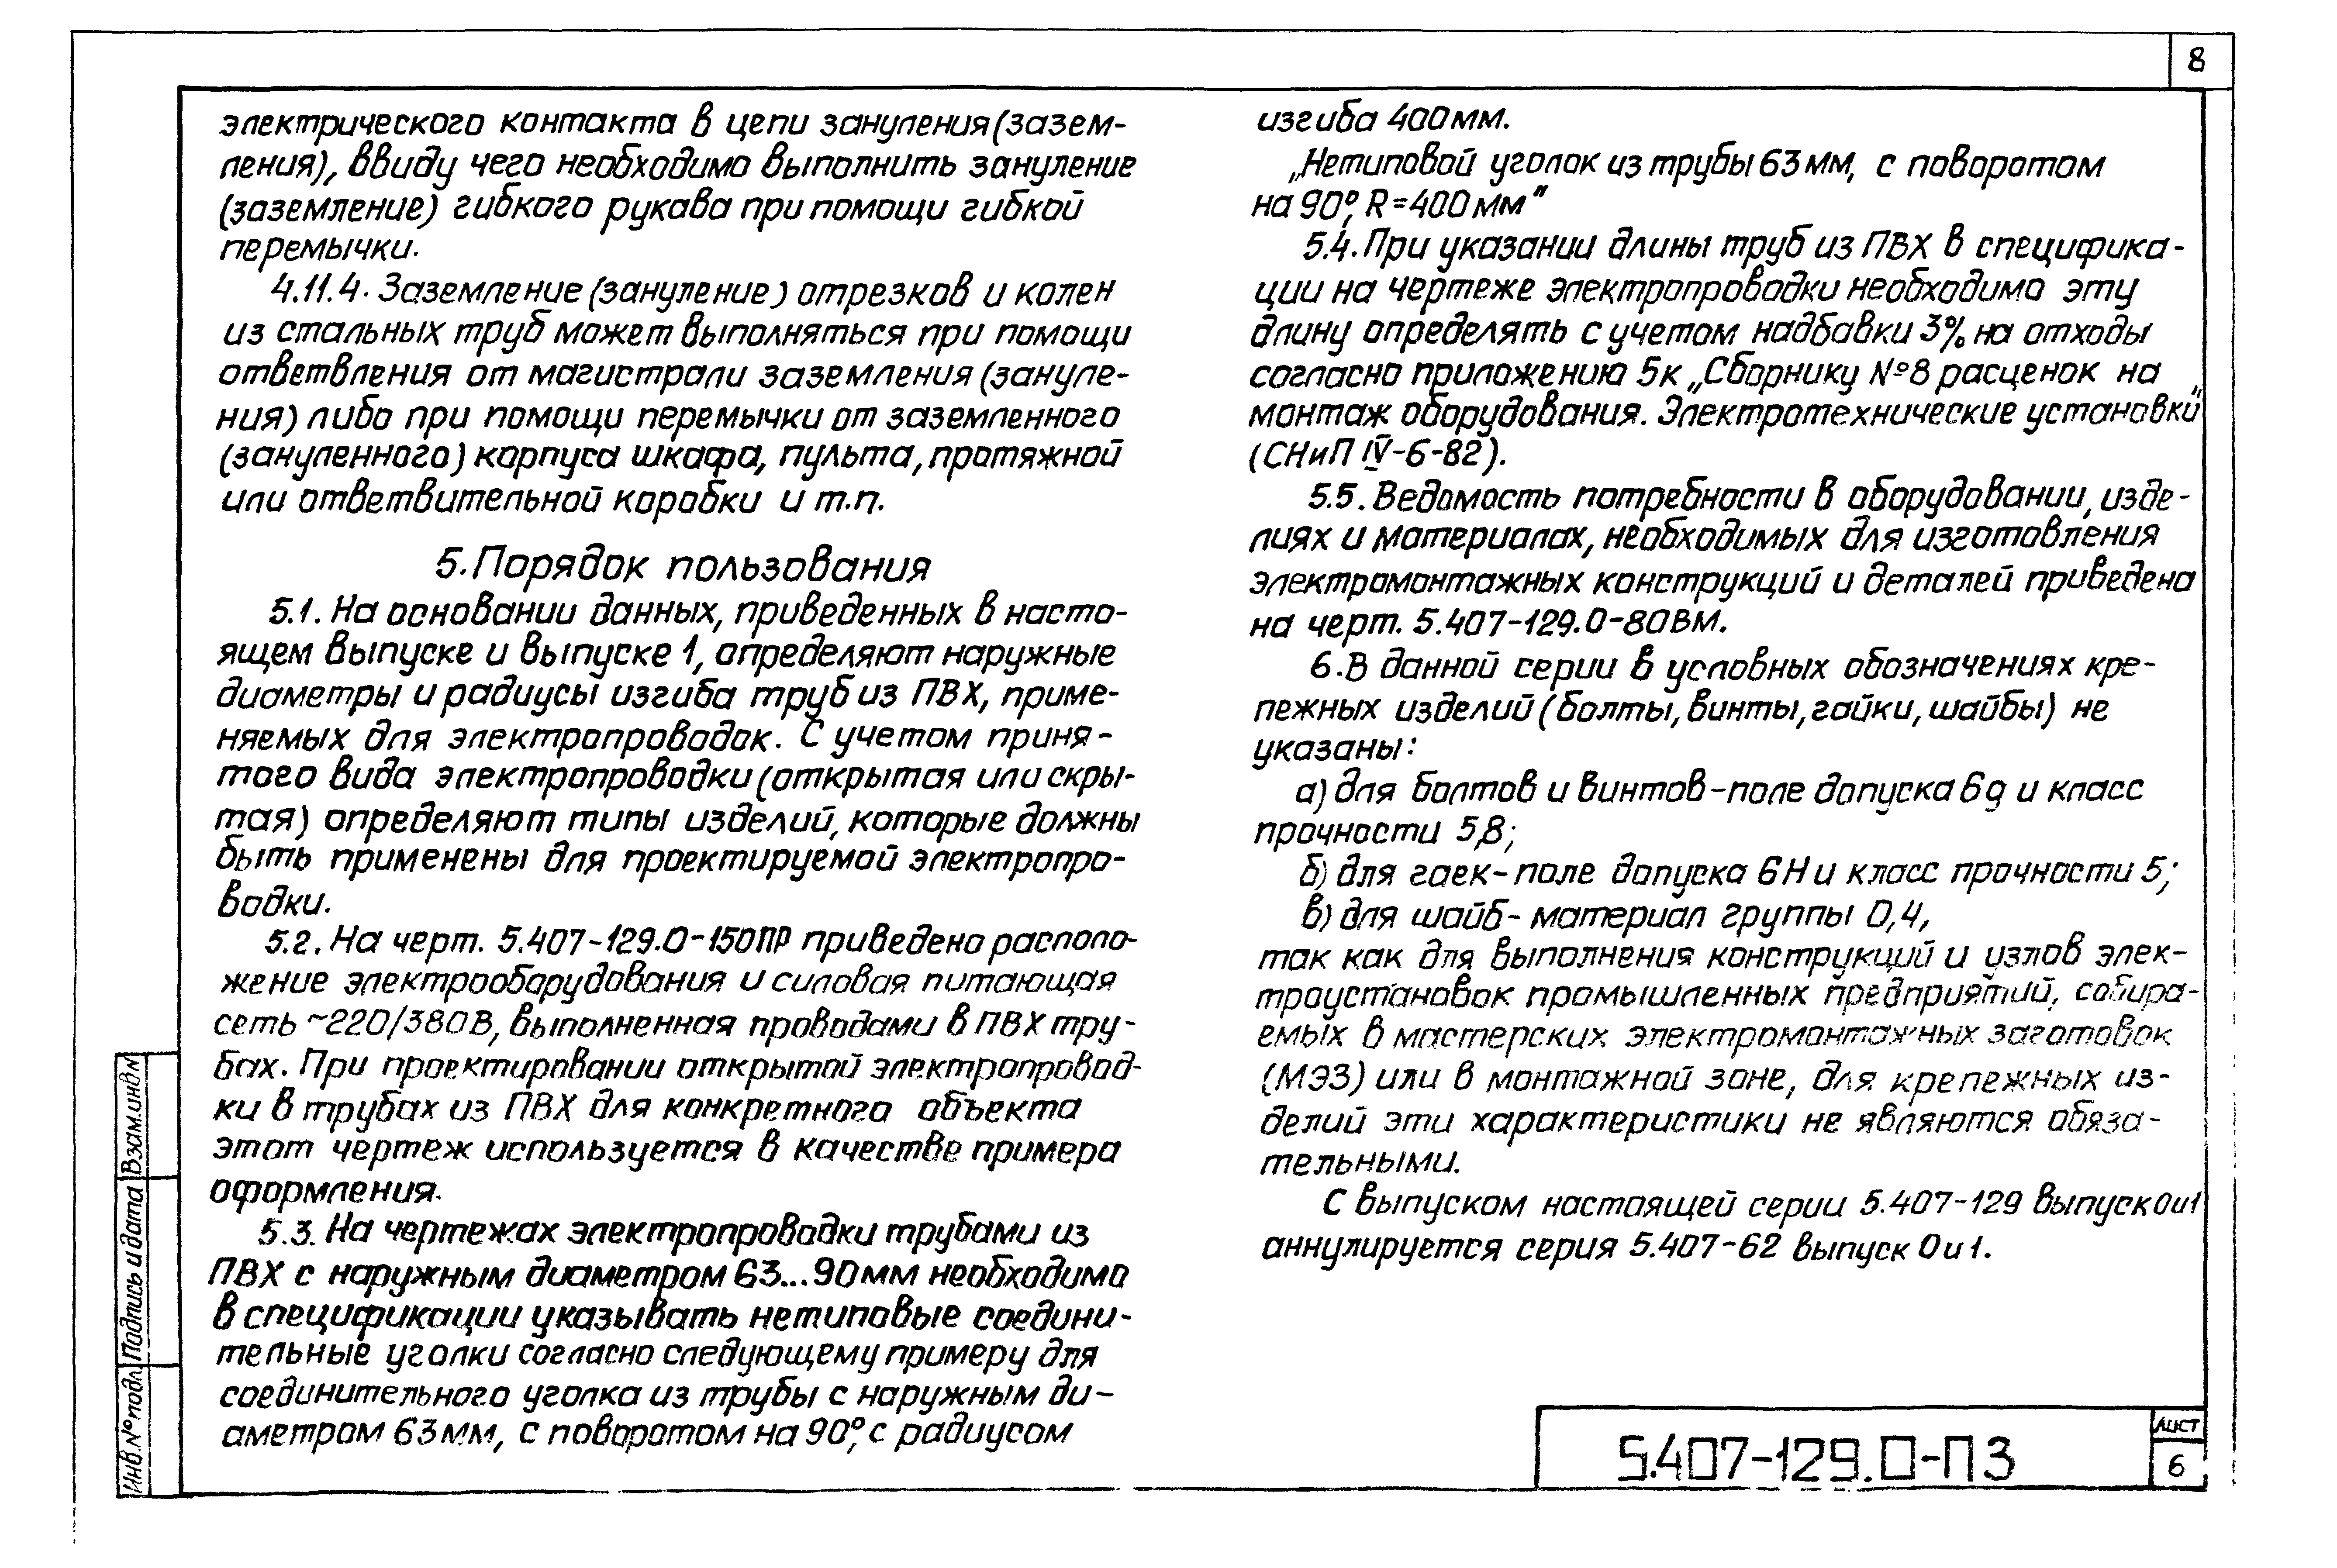 8
электрического контакта в цепи зануления (зазем-
ления), ввиду чего необходимо выполнить зануление
(заземление) гибкого рукава при помощи гибкой
перемычки.
4.11.4. Заземление (зануление) отрезков и колен
из стальных труб может выполняться при помощи
ответвления от магистрали заземления (зануле-
ния) либо при помощи перемычки от заземленного
(зануленного) корпуса шкафа, пульта, протяжной
или ответвительной коробки и т.п.
5. Порядок пользования
5.1. На основании данных, приведенных в насто-
ящем выпуске и выпуске 1, определяют наружные
диаметры и радиусы изгиба труб из ПВХ, приме-
няемых для электропроводок. С учетом приня-
того вида электропроводки (открытая или скры-
тая) определяют типы изделий, которые должны
быть применены для проектируемой электропро-
водки.
5.2. На черт. 5.407-129.0-150ПР приведено располо-
жение электрооборудования и силовая питающая
сеть ~220/380В, выполненная проводами в ПВХ тру-
бах. При проектировании открытой электропровод-
ки в трубах из ПВХ для конкретного объекта
этот чертеж используется в качестве примера
оформления.
5.3. На чертежах электропроводки трубами из
ПВХ с наружным диаметром 63...90мм необходимо
в спецификации указывать нетиповые соедини-
тельные уголки согласно следующему примеру для
соединительного уголка из трубы с наружным ди-
аметром 63мм, с поворотом на 90°, с радиусом
изгиба 400мм.
„Нетиповой уголок из трубы 63мм, с поворотом
на 90°, R=400мм"
5.4. При указании длины труб из ПВХ в специфика-
ции на чертеже электропроводки необходимо эту
длину определять с учетом надбавки 3% на отходы
согласно приложению 5 к „Сборнику №8 расценок на
монтаж оборудования. Электротехнические установки"
(СНиП IV-6-82).
5.5. Ведомость потребности в оборудовании, изде-
лиях и материалах, необходимых для изготовления
электромонтажных конструкций и деталей приведена
на черт. 5.407-129.0-80ВМ.
6. В данной серии в условных обозначениях кре-
пежных изделий (болты, винты, гайки, шайбы) не
указаны:
а) для болтов и винтов-поле допуска 6g и класс
прочности 5,8;
б) для гаек-поле допуска 6Н и класс прочности 5;
в) для шайб-материал группы 0,4,
так как для выполнения конструкций и узлов элек-
троустановок промышленных предприятий, собира-
емых в мастерских электромонтажных заготовок
(МЭЗ) или в монтажной зоне, для крепежных из-
делий эти характеристики не являются обяза-
тельными.
С выпуском настоящей серии 5.407-129 выпуск 0 и 1
аннулируется серия 5.407-62 выпуск 0 и 1.
Инв.№ подл. Подпись и дата Взам.инв№
5.407-129.0-ПЗ
Лист
6